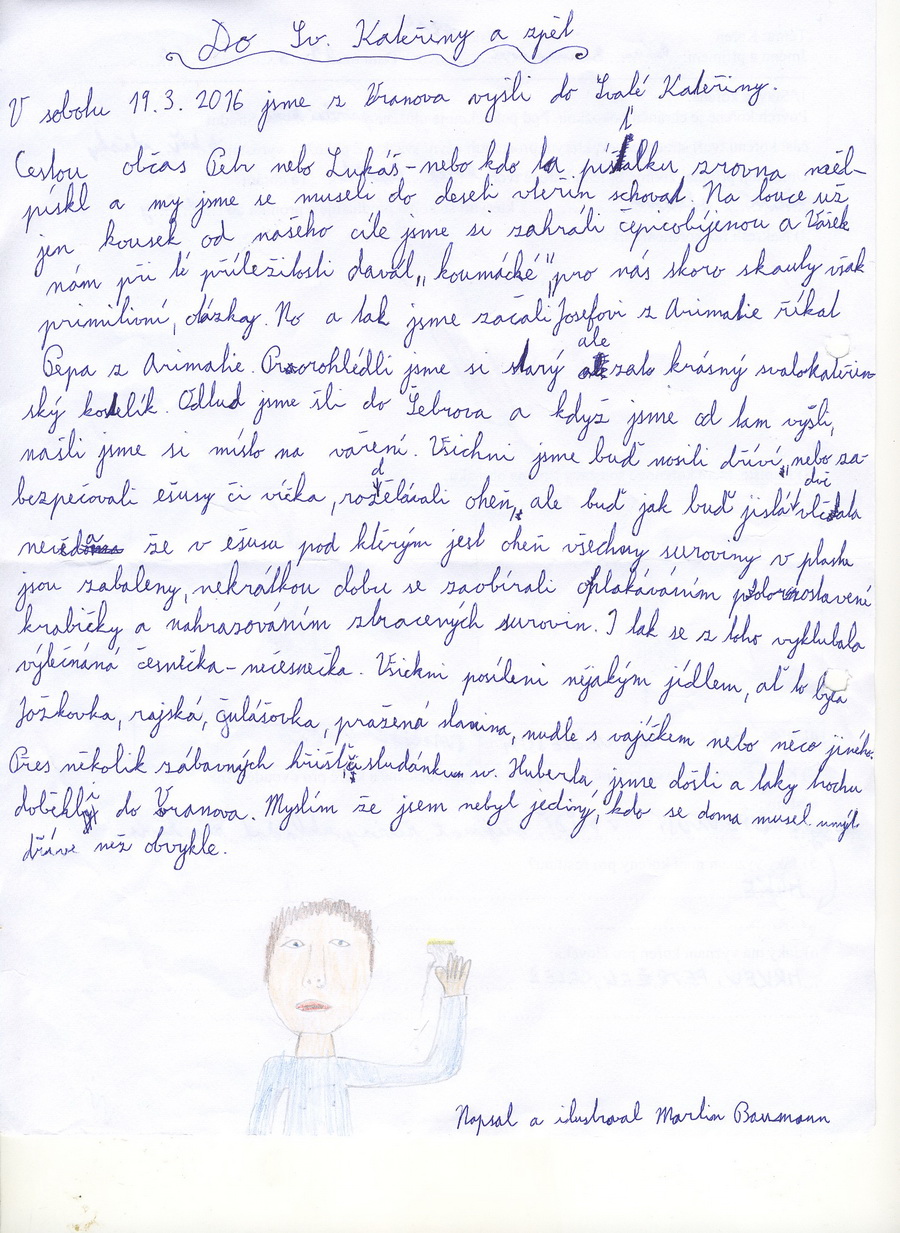 Do Sv. Kateřiny a zpět
V sobotu 19.3. 2016 jsme z Vranova vyšli do Svaté Kateřiny.
Cestou občas Petr nebo Lukáš-nebo kdo ta píšťalku zrovna měl-
pískl a my jsme se museli do deseti vteřin schovat. Na louce už
jen kousek od našeho cíle jsme si zahráli čepicobíjenou a Vašek
nám při té příležitosti dával "koumácké" pro nás skoro skauty však
primitivní, otázky. No a tak jsme začali Josefovi z Arimatie říkat
Pepa z Arimatie. Prorohlédli jsme si starý ale zato krásný svatokateřin-
ský kostelík. Odtud jsme šli do Šebrova a když jsme od tam vyšli,
našli jsme si místo na vaření. Všichni jsme buď nosili dříví, nebo za-
bezpečovali ešusy či víčka, rozdělávali oheň, ale buď jak buď jistá dvě vlčata
nevěda že v ešusu pod kterým jest oheň všechny suroviny v plastu
jsou zabaleny, nekrátkou dobu se zaobírali oplakáváním pozostavení
krabičky a nahrazováním ztracených surovin. I tak se z toho vyklubala
výtečnáná česnečka-nečesnečka. Všichni posíleni nějakým jídlem, ať to byla
Jožkovka, rajská, gulášovka, pražená slanina, nudle s vajíčkem nebo něco jiného.
Přes několik zábavných hřišť a studánkum sv. Huberta, jsme došli a taky trochu
doběhly do Vranova. Myslím že jsem nebyl jediný, kdo se doma musel umýt
dříve než obvykle.
Napsal a ilustroval Martin Bausmann